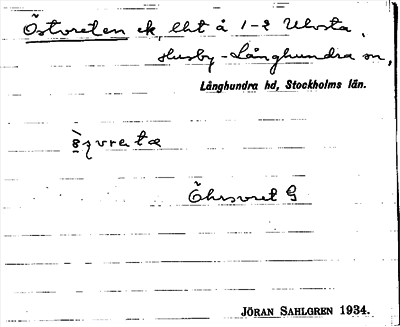 Östvreten ek, lht å 1-2 Ulvsta,
Husby-Långhundra sn,
Långhundra hd, Stockholms län.
Öhrsvret G
JÖRAN SAHLGREN 1934.